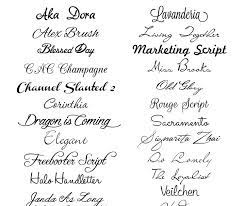 Aka Dora
Alex Brush
Blessed Day
CAC Champagne
Channel Slanted 2
Corinthia
Dragon is Coming
Elegant
Freebooter Script
Halo Handletter
Janda As Long
Lavanderia
Living Together
Marketing Script
Miss Brooks
Old Glory
Rouge Script
Sacramento
Signarita Zhai
So Lonely
The Loyalist
Veilchen